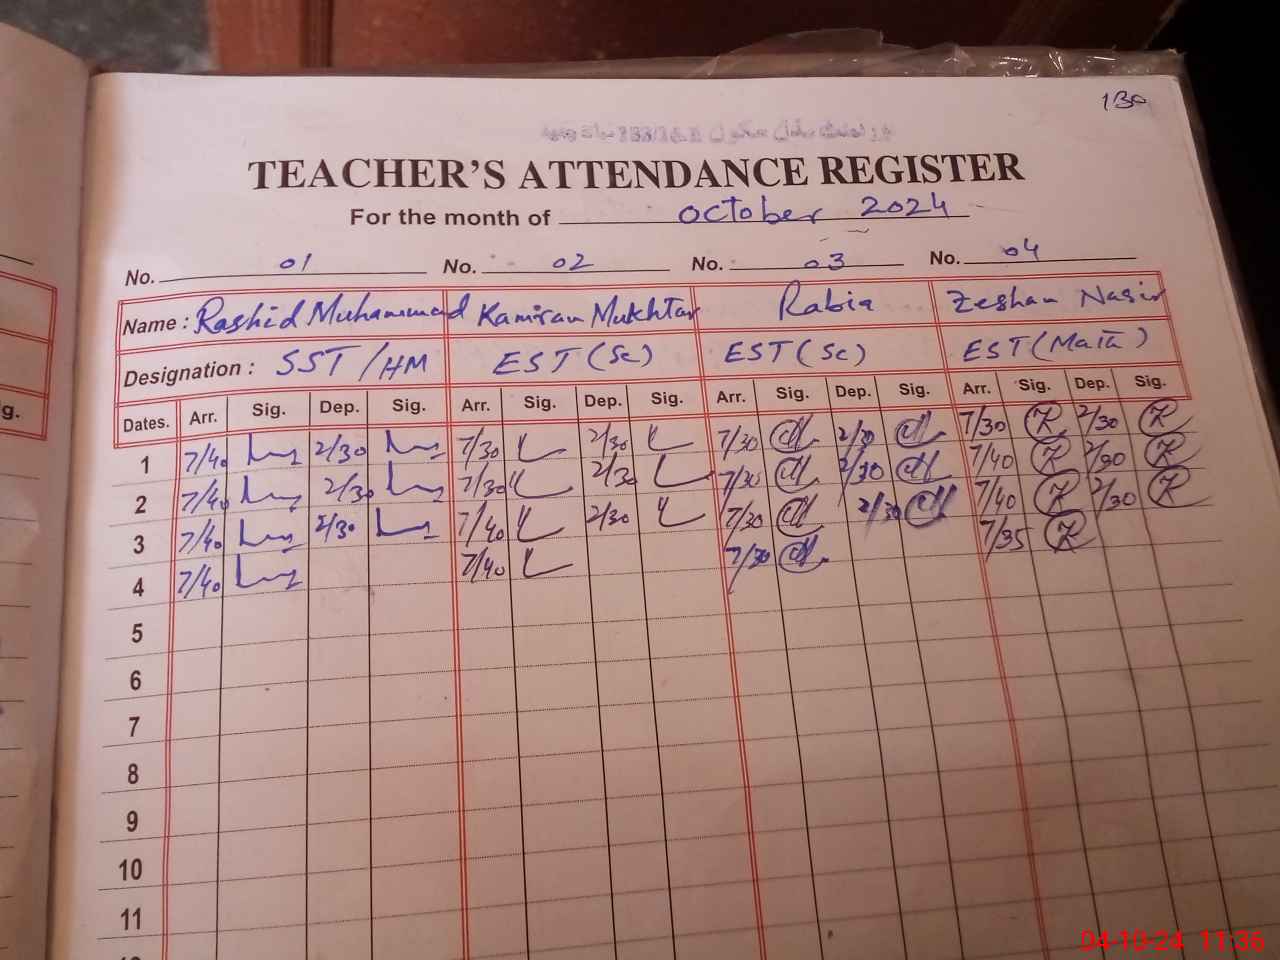 130
TEACHER'S ATTENDANCE REGISTER
For the month of October 2024
No. 01 No. 02 No. 03 No. 04
Name : Rashid Muhammad Kamran Mukhtar Rabia Zeshan Nasir
Designation : SST/HM EST (Sc) EST (Sc) EST (Math)
Dates. Arr. Sig. Dep. Sig. Arr. Sig. Dep. Sig. Arr. Sig. Dep. Sig. Arr. Sig. Dep. Sig.
1 7/40 2/30 7/30 2/30 7/30 2/30 7/30 2/30
2 7/40 2/30 7/30 2/30 7/30 2/30 7/40 2/30
3 7/40 2/30 7/40 2/30 7/30 2/30 7/40 2/30
4 7/40 7/40 7/30 7/35
5
6
7
8
9
10
11
g.
04-10-24 11:36